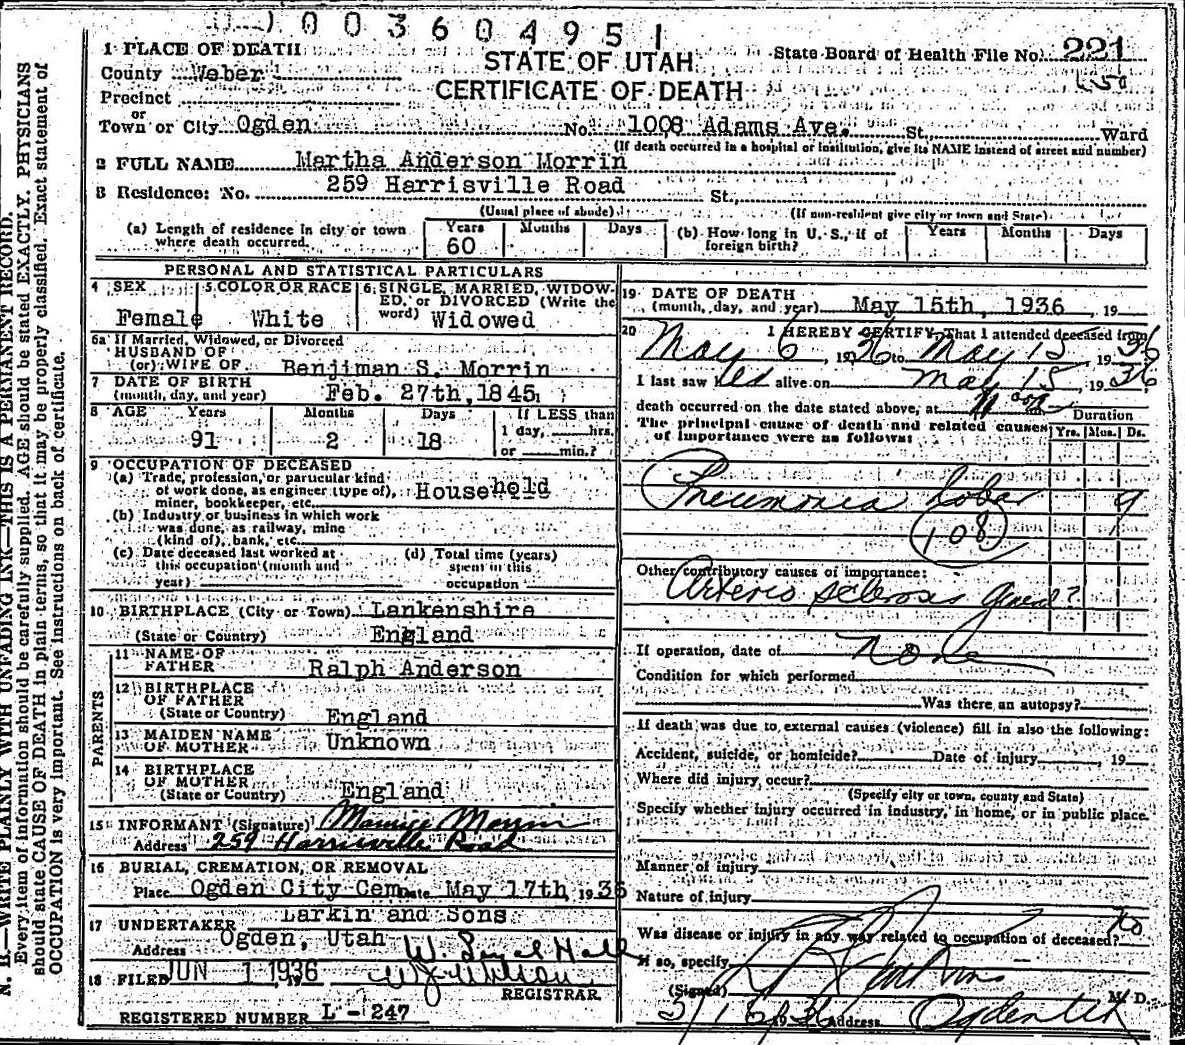 003604951
1 PLACE OF DEATH
STATE OF UTAH
State Board of Health File No. 221
County Weber
CERTIFICATE OF DEATH
Precinct
or
Town or City Ogden No. 1008 Adams Ave. St., Ward
(If death occurred in a hospital or institution, give its NAME instead of street and number)
2 FULL NAME Martha Anderson Morrin
3 Residence: No. 259 Harrisville Road St.,
(Usual place of abode) (If non-resident give city or town and State)
(a) Length of residence in city or town where death occurred. Years 60 Months Days (b) How long in U. S., if of foreign birth? Years Months Days
PERSONAL AND STATISTICAL PARTICULARS
4 SEX Female
5 COLOR OR RACE White
6 SINGLE, MARRIED, WIDOWED, or DIVORCED (Write the word) Widowed
6a If Married, Widowed, or Divorced
HUSBAND OF
(or) WIFE OF Benjiman S. Morrin
7 DATE OF BIRTH
(month, day, and year) Feb. 27th, 1845
8 AGE Years Months Days If LESS than
91 2 18 1 day, hrs.
or min.?
9 OCCUPATION OF DECEASED
(a) Trade, profession, or particular kind
of work done, as engineer (type of), Household
miner, bookkeeper, etc.
(b) Industry or business in which work
was done, as railway, mine
(kind of), bank, etc.
(c) Date deceased last worked at
this occupation (month and
year)
(d) Total time (years)
spent in this
occupation
10 BIRTHPLACE (City or Town) Lankenshire
(State or Country) England
PARENTS
11 NAME OF
FATHER Ralph Anderson
12 BIRTHPLACE
OF FATHER
(State or Country) England
13 MAIDEN NAME
OF MOTHER Unknown
14 BIRTHPLACE
OF MOTHER
(State or Country) England
15 INFORMANT (Signature) Maurice Morrin
Address 259 Harrisville Road
16 BURIAL, CREMATION, OR REMOVAL
Place Ogden City Cem Date May 17th, 1936
17 UNDERTAKER Larkin and Sons
Address Ogden, Utah
18 FILED JUN 1 1936
REGISTRAR
REGISTERED NUMBER L - 247
19 DATE OF DEATH
(month, day, and year) May 15th, 1936, 19
20 I HEREBY CERTIFY, That I attended deceased from
May 6, 1936 to May 15, 1936
I last saw alive on May 15, 1936
death occurred on the date stated above, at
Duration
The principal cause of death and related causes
of importance were as follows: Yrs. Mos. Ds.
Pneumonia Lobar 9
108
Other contributory causes of importance:
Arterio sclerosis general ?
If operation, date of None
Condition for which performed
Was there an autopsy?
If death was due to external causes (violence) fill in also the following:
Accident, suicide, or homicide? Date of injury, 19
Where did injury occur?
(Specify city or town, county and State)
Specify whether injury occurred in industry, in home, or in public place.
Manner of injury
Nature of injury
Was disease or injury in any way related to occupation of deceased? No
If so, specify
(Signed) M. D.
5/16/1936 Address Ogden Ut
N. B.—WRITE PLAINLY WITH UNFADING INK—THIS IS A PERMANENT RECORD.
Every item of information should be carefully supplied. AGE should be stated EXACTLY. PHYSICIANS
should state CAUSE OF DEATH in plain terms, so that it may be properly classified. Exact statement of
OCCUPATION is very important. See instructions on back of certificate.